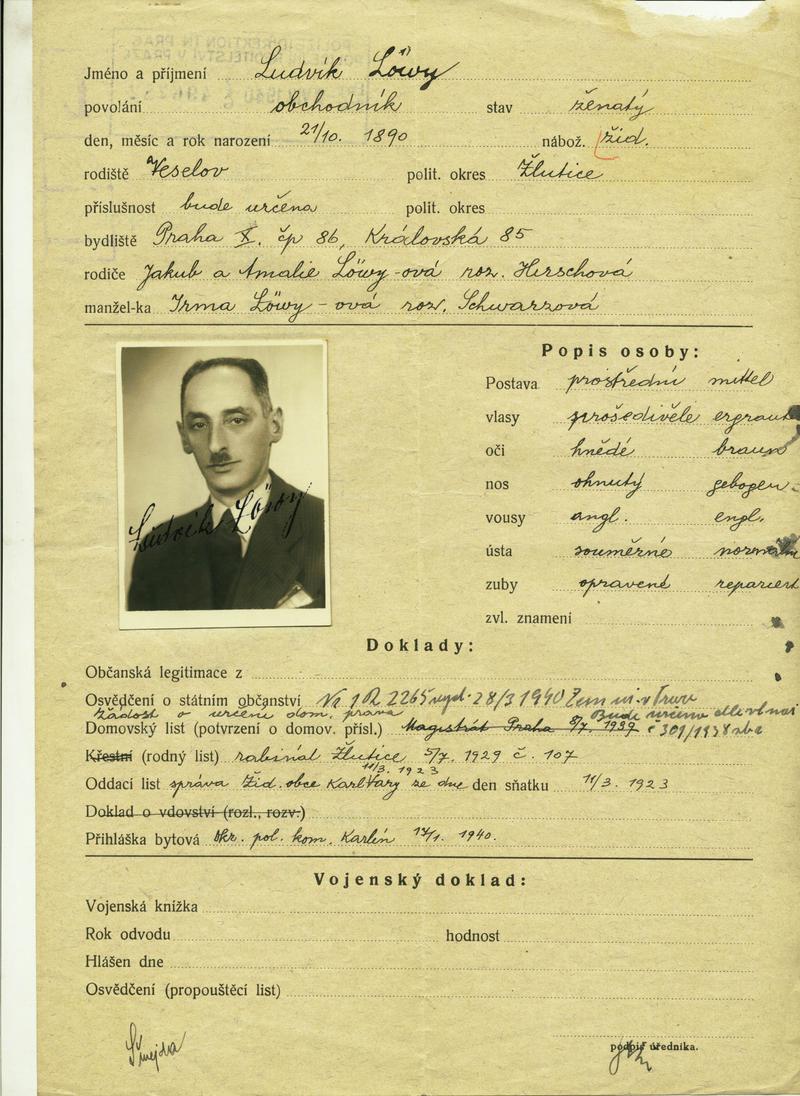 Jméno a příjmení Ludvík Löwy
povolání obchodník stav ženatý
den, měsíc a rok narození 21/10. 1890 nábož. žid.
rodiště Veselov polit. okres Žlutice
příslušnost bude určena polit. okres
bydliště Praha X. čp 86, Královská 85
rodiče Jakub a Amalie Löwy-ová roz. Herschová
manžel-ka Irma Löwy-ová roz. Schwarzová
Popis osoby:
Postava prostřední mittel
vlasy prošedivělé ergraut
oči hnědé braun
nos ohnutý gebogen
vousy angl. engl.
ústa souměrné normalm
zuby opravené repariert
zvl. znamení
Ludvík Löwy
Doklady:
Občanská legitimace z
Osvědčení o státním občanství 2265 28/3 1940
žádost o určení dom. práva
Domovský list (potvrzení o domov. přísl.) Magistrát Praha 8/7. 1929
Křestní (rodný list) rabinát Žlutice 5/7. 1929 č. 107
11/3. 1923
Oddací list správa žid. obce Karl Vary ze dne den sňatku 11/3. 1923
Doklad o vdovství (rozl., rozv.)
Přihláška bytová okr. pol. kom. Karlín 1940.
Vojenský doklad:
Vojenská knížka
Rok odvodu hodnost
Hlášen dne
Osvědčení (propouštěcí list)
podpis úředníka.